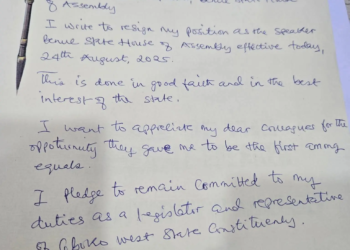 of Assembly
I write to resign my position as the speaker
Benue State House of Assembly effective today,
24th August, 2025.
This is done in good faith and in the best
interest of the state.
I want to appreciate my dear colleagues for the
opportunity they gave me to be the first among
equals.
I pledge to remain committed to my
duties as a legislator and representative
of Gboko West State Constituency.